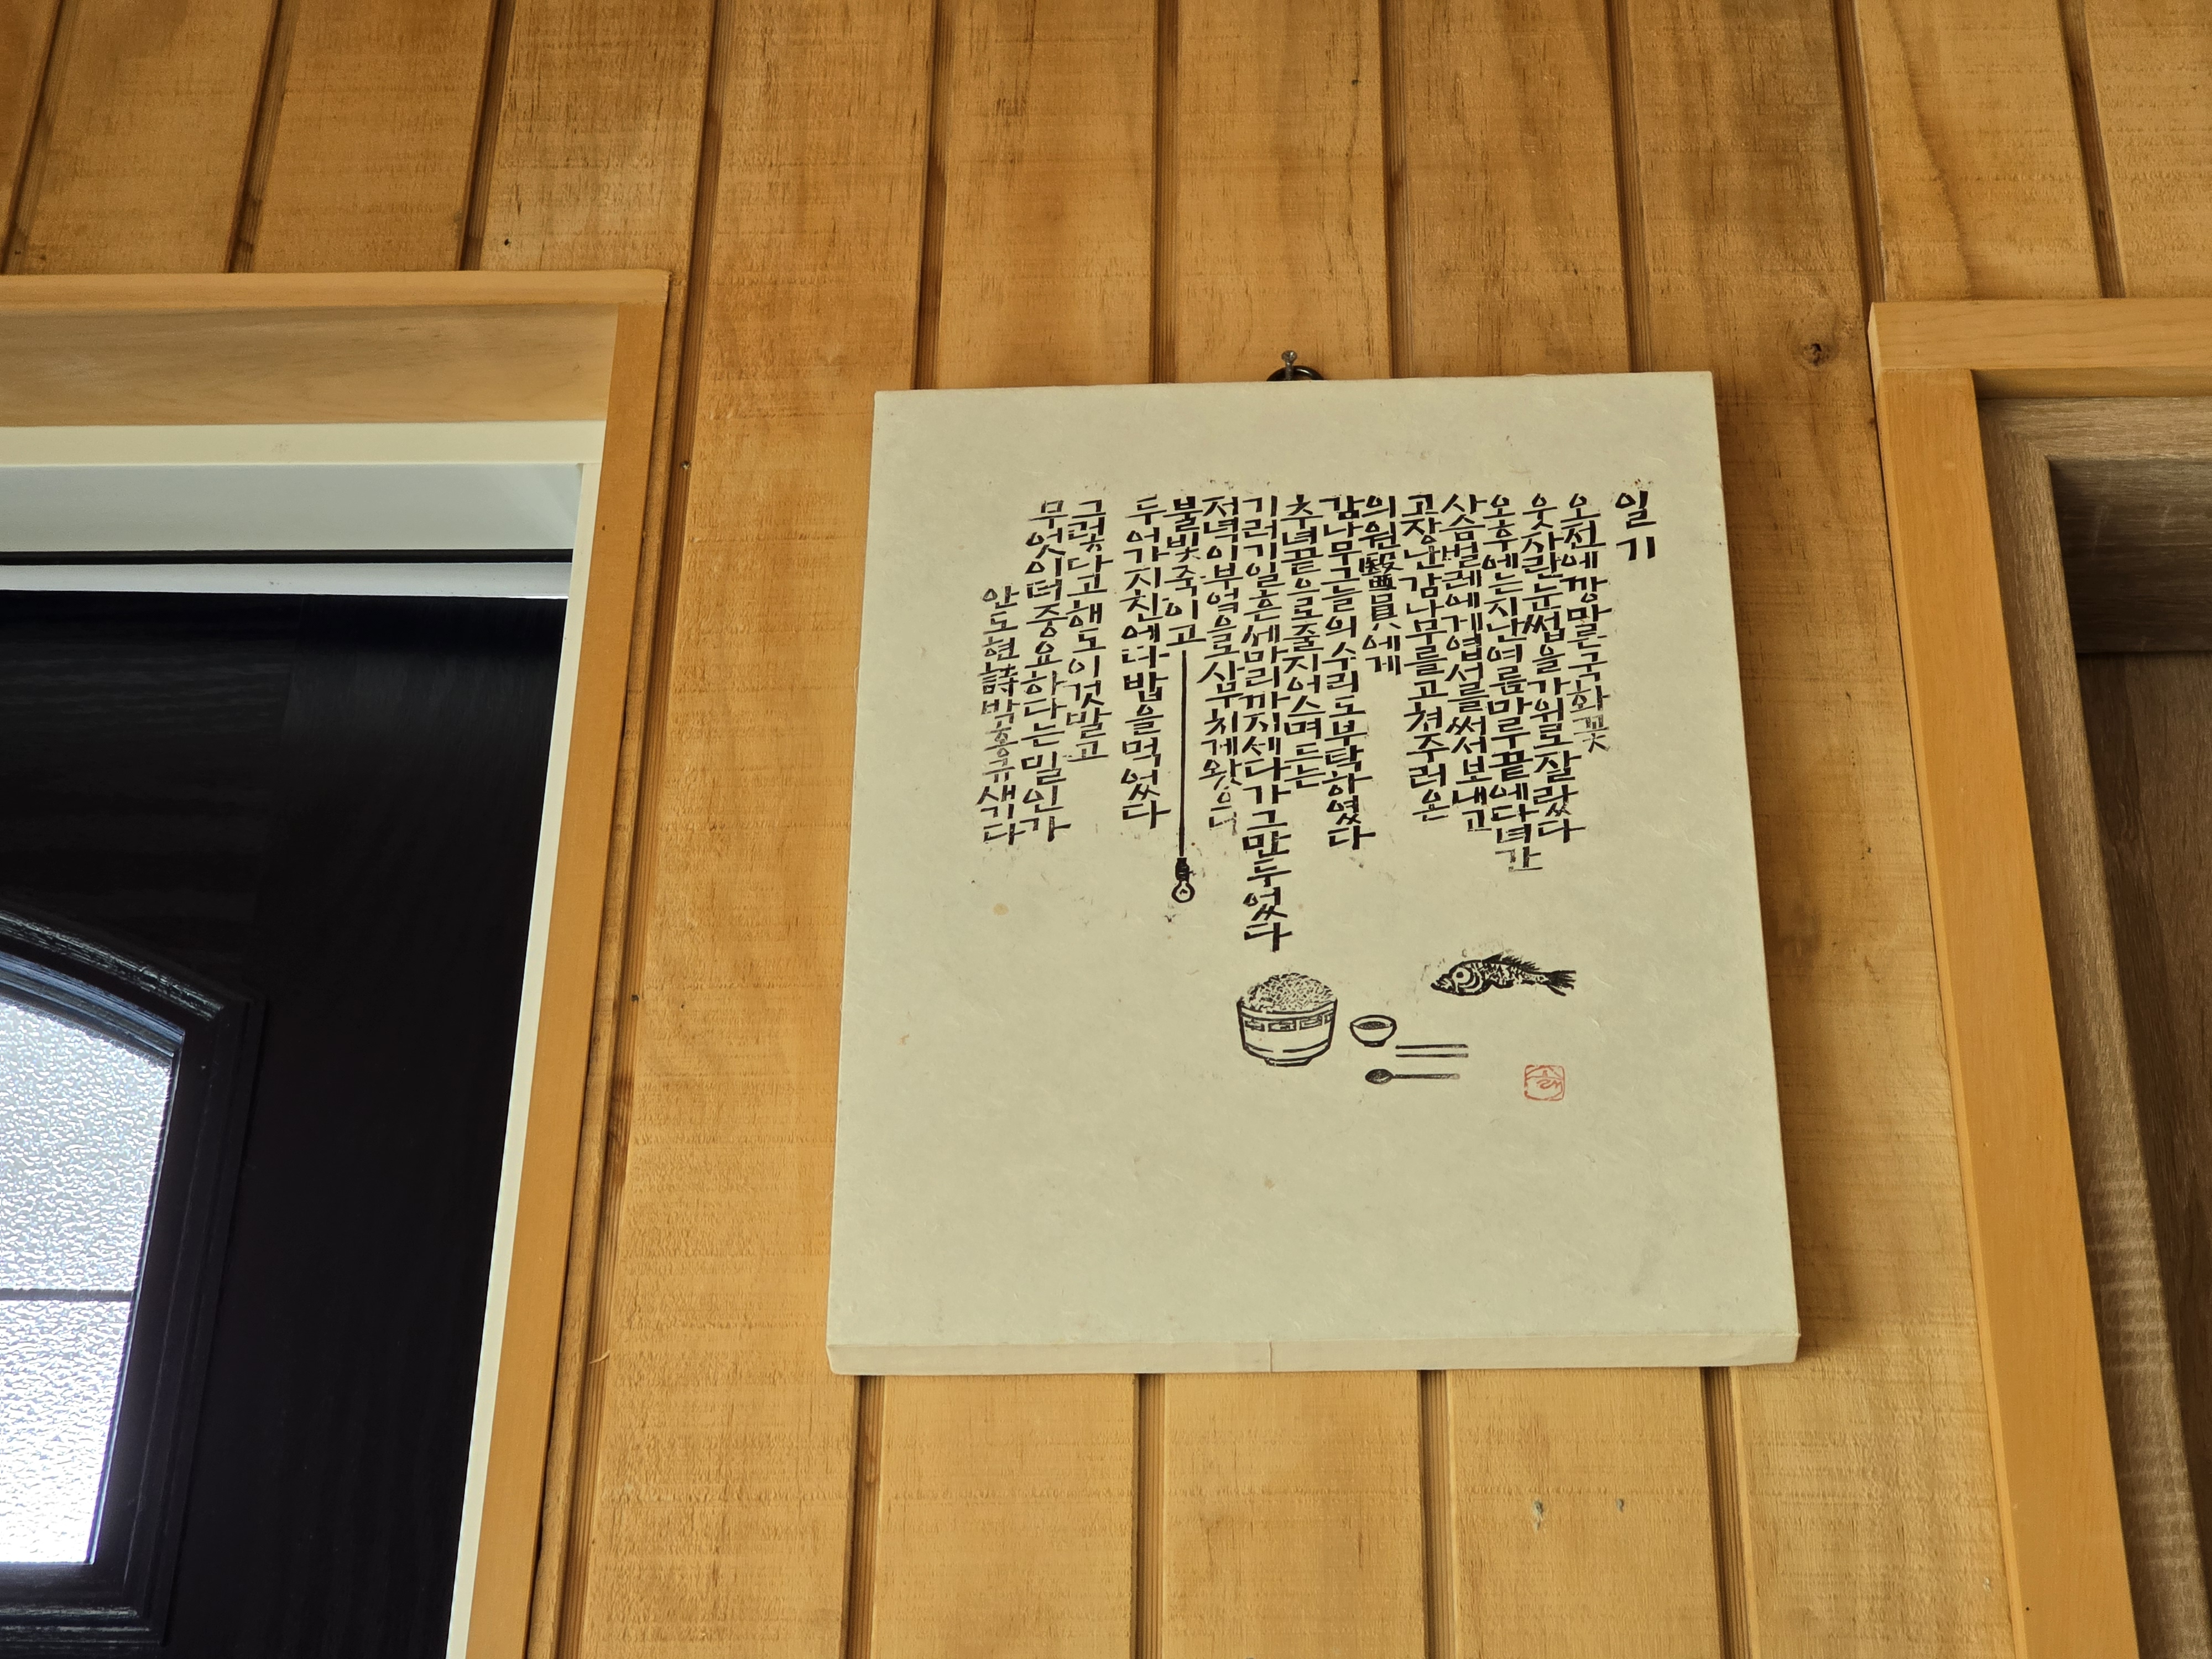 일기
오전에깡마른국화꽃
웃자란눈썹을가위로잘랐다
오후에는지난여름마루끝에다녀간
사슴벌레에게엽서를써서보내고
고장난감나무를고쳐주러온
의원醫員에게
감나무그늘의수리도부탁하였다
추녀끝으로줄지어스며드는
기러기일흔세마리까지세다가그만두었다
저녁이부엌을사무치게왔으니
불빛죽이고
두어가지찬에다밥을먹었다
그렇다고해도이것말고
무엇이더중요하다는말인가
안도현詩박홍규새기다